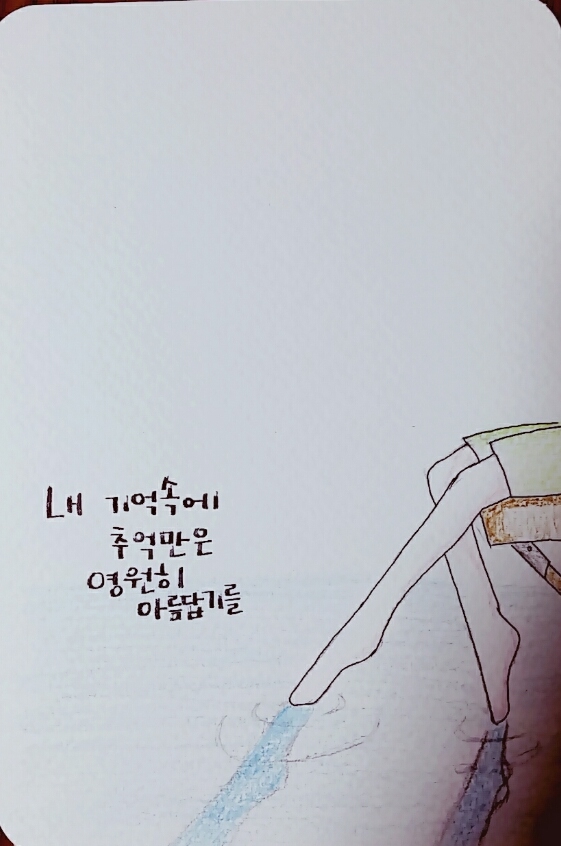 내 기억속에
추억만은
영원히
아름답기를